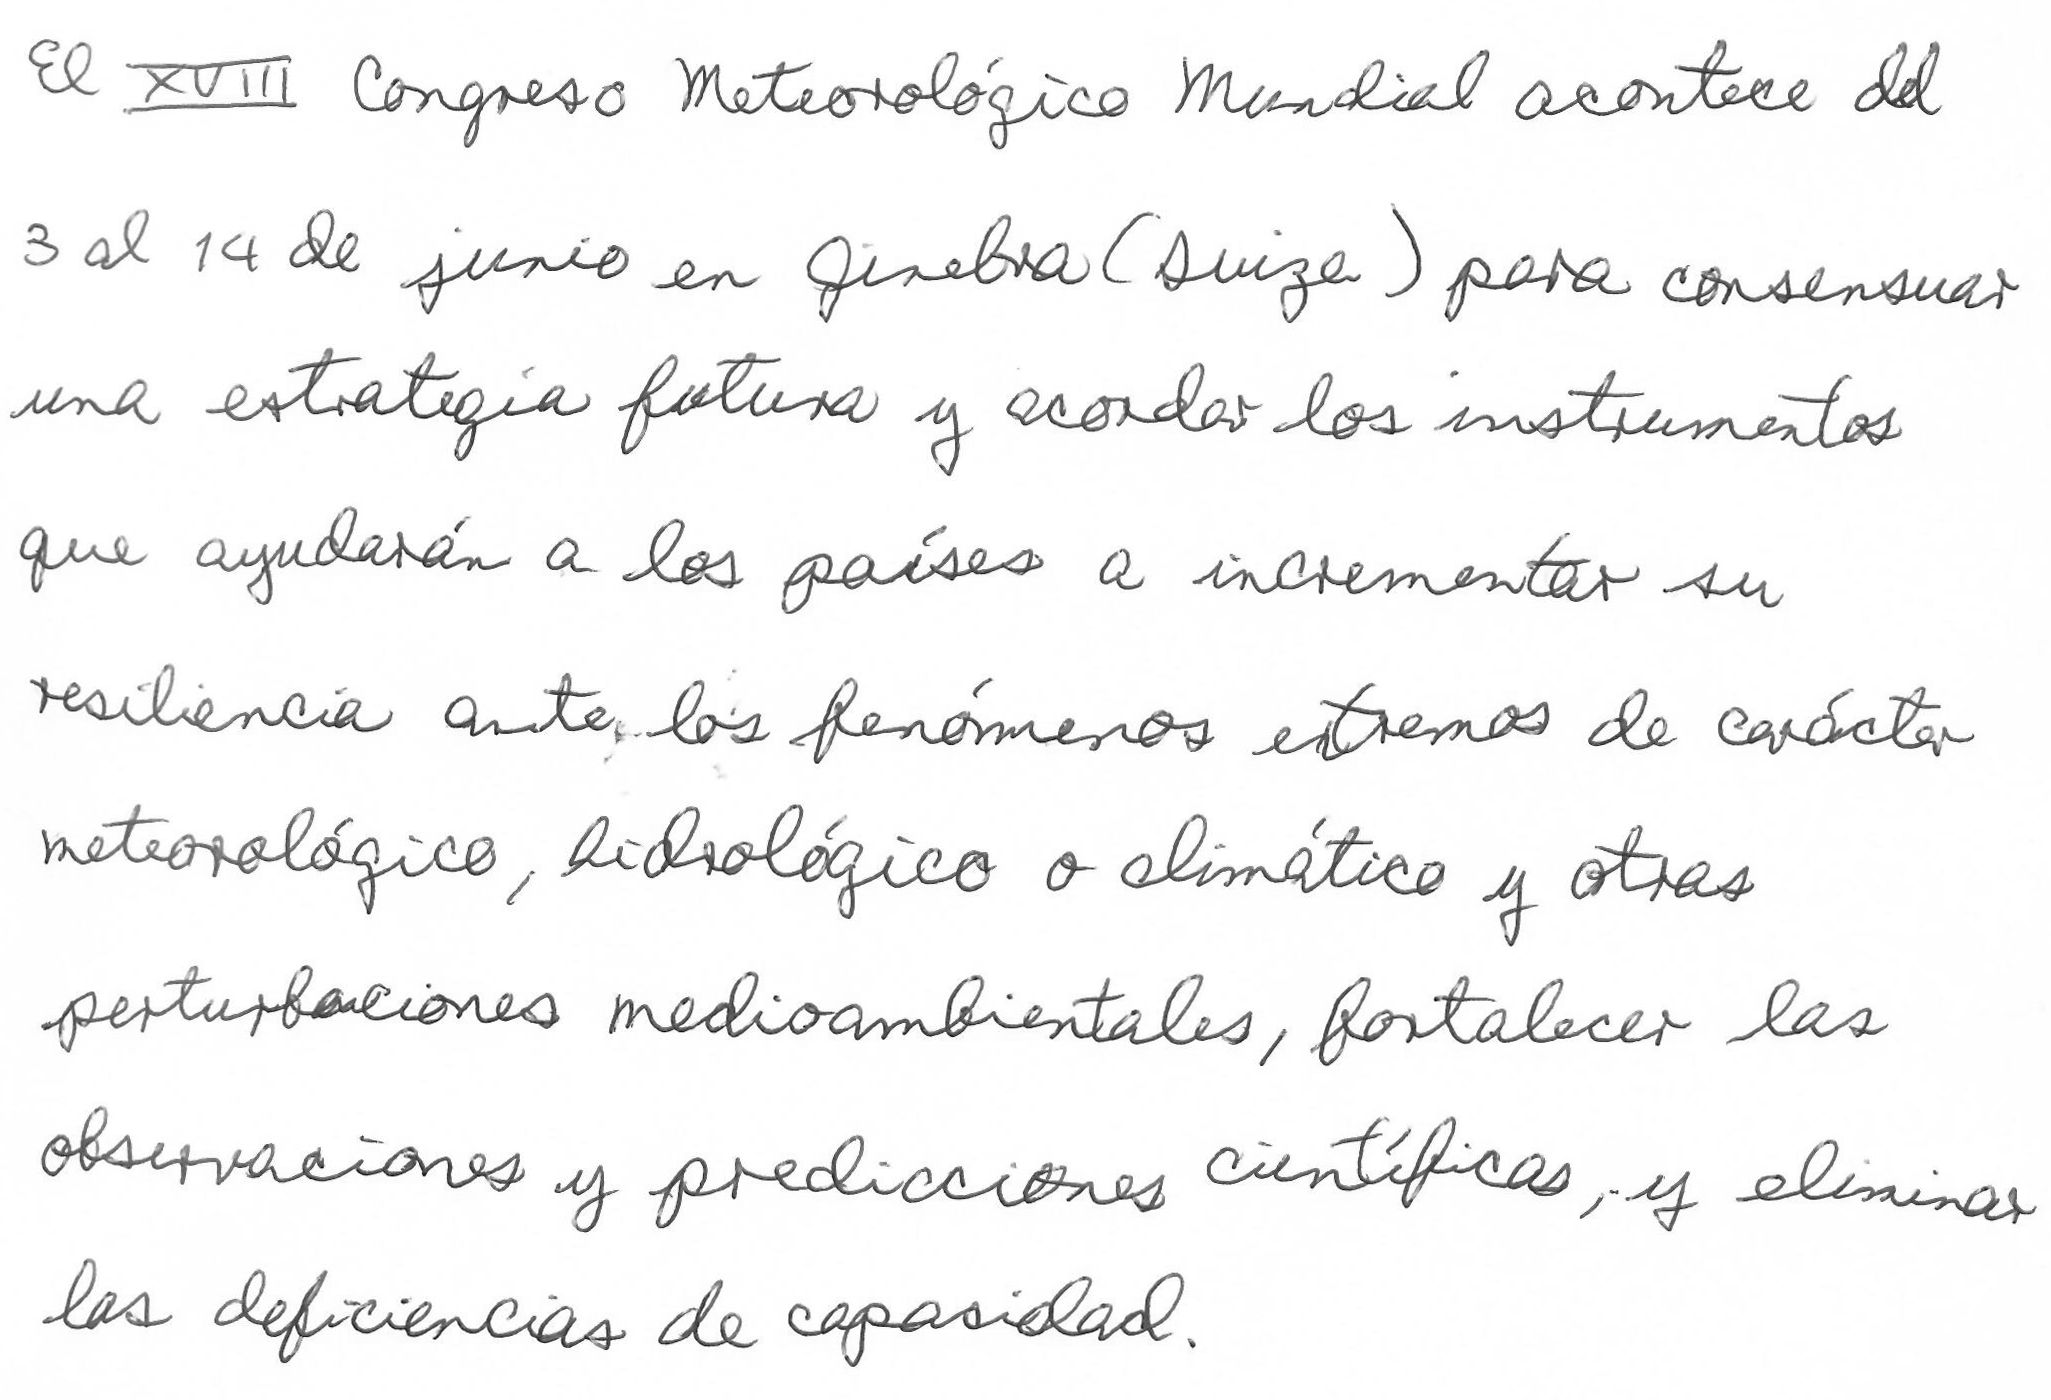 El XVIII Congreso Meteorológico Mundial acontece del
3 al 14 de junio en Ginebra (Suiza) para consensuar
una estrategia futura y acordar los instrumentos
que ayudarán a los países a incrementar su
resiliencia ante los fenómenos extremos de carácter
meteorológico, hidrológico o climático y otras
perturbaciones medioambientales, fortalecer las
observaciones y predicciones científicas, y eliminar
las deficiencias de capasidad.